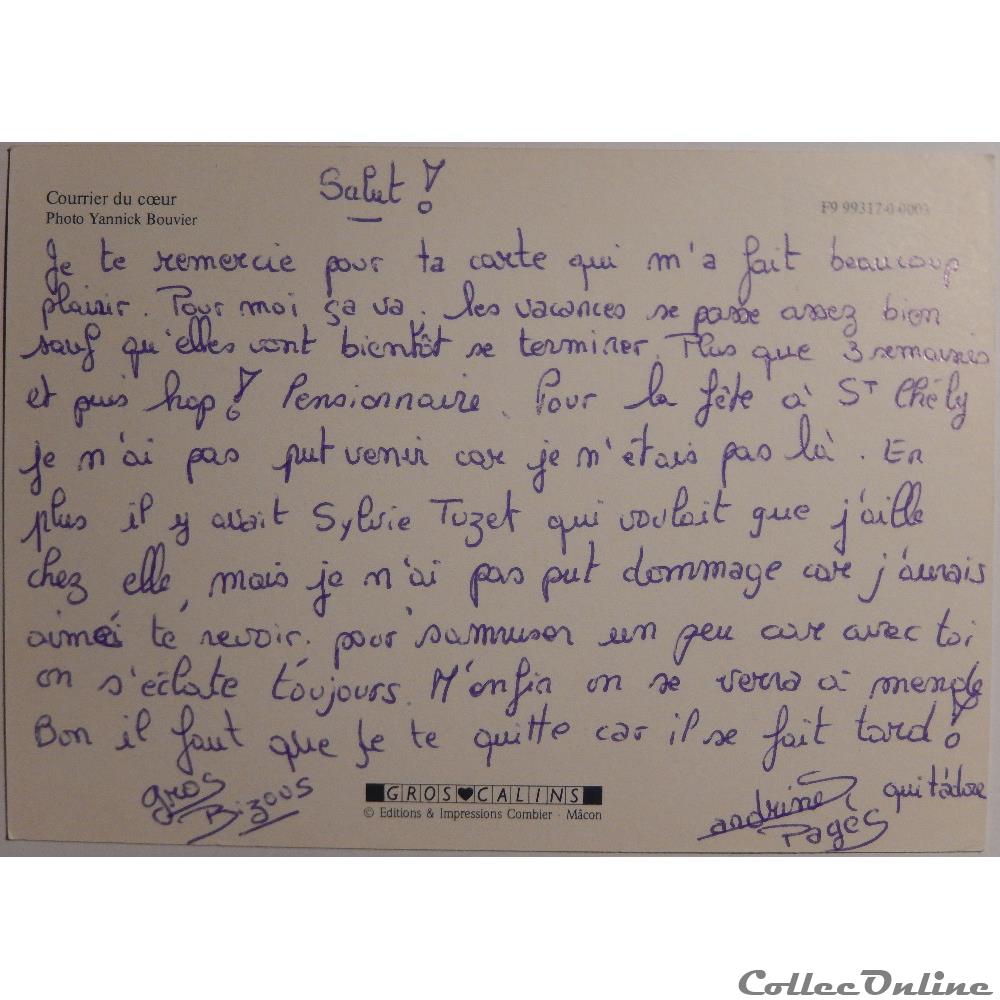 Salut !
Courrier du cœur
Photo Yannick Bouvier
F9 99317-0-0003
Je te remercie pour ta carte qui m'a fait beaucoup
plaisir. Pour moi ça va. les vacances se passe assez bien
sauf qu'elles vont bientôt se terminer. Plus que 3 semaines
et puis hop ! Pensionnaire. Pour la fête à ST Chély
je n'ai pas put venir car je n'étais pas là. En
plus il y avait Sylvie Tuzet qui voulait que j'aille
chez elle, mais je n'ai pas put dommage car j'aurais
aimé te revoir. pour s'amuser un peu car avec toi
on s'éclate toujours. M'enfin on se verra à
Bon il faut que je te quitte car il se fait tard !
gros
Bizous
GROS♥CALINS
© Editions & Impressions Combier - Mâcon
qui t'adore
Pagès
CollecOnline